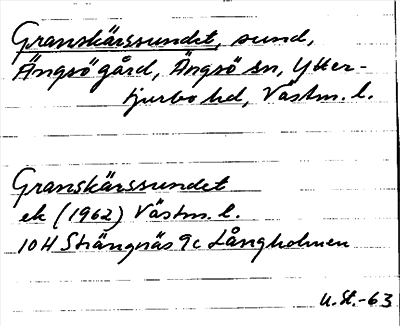 Granskärssundet, sund,
Ängsö gård, Ängsö sn, Ytter-
tjurbo hd, Västm. l.
Granskärssundet
ek (1962) Västm. l.
10 H Strängnäs 9c Långholmen
U.St.-63